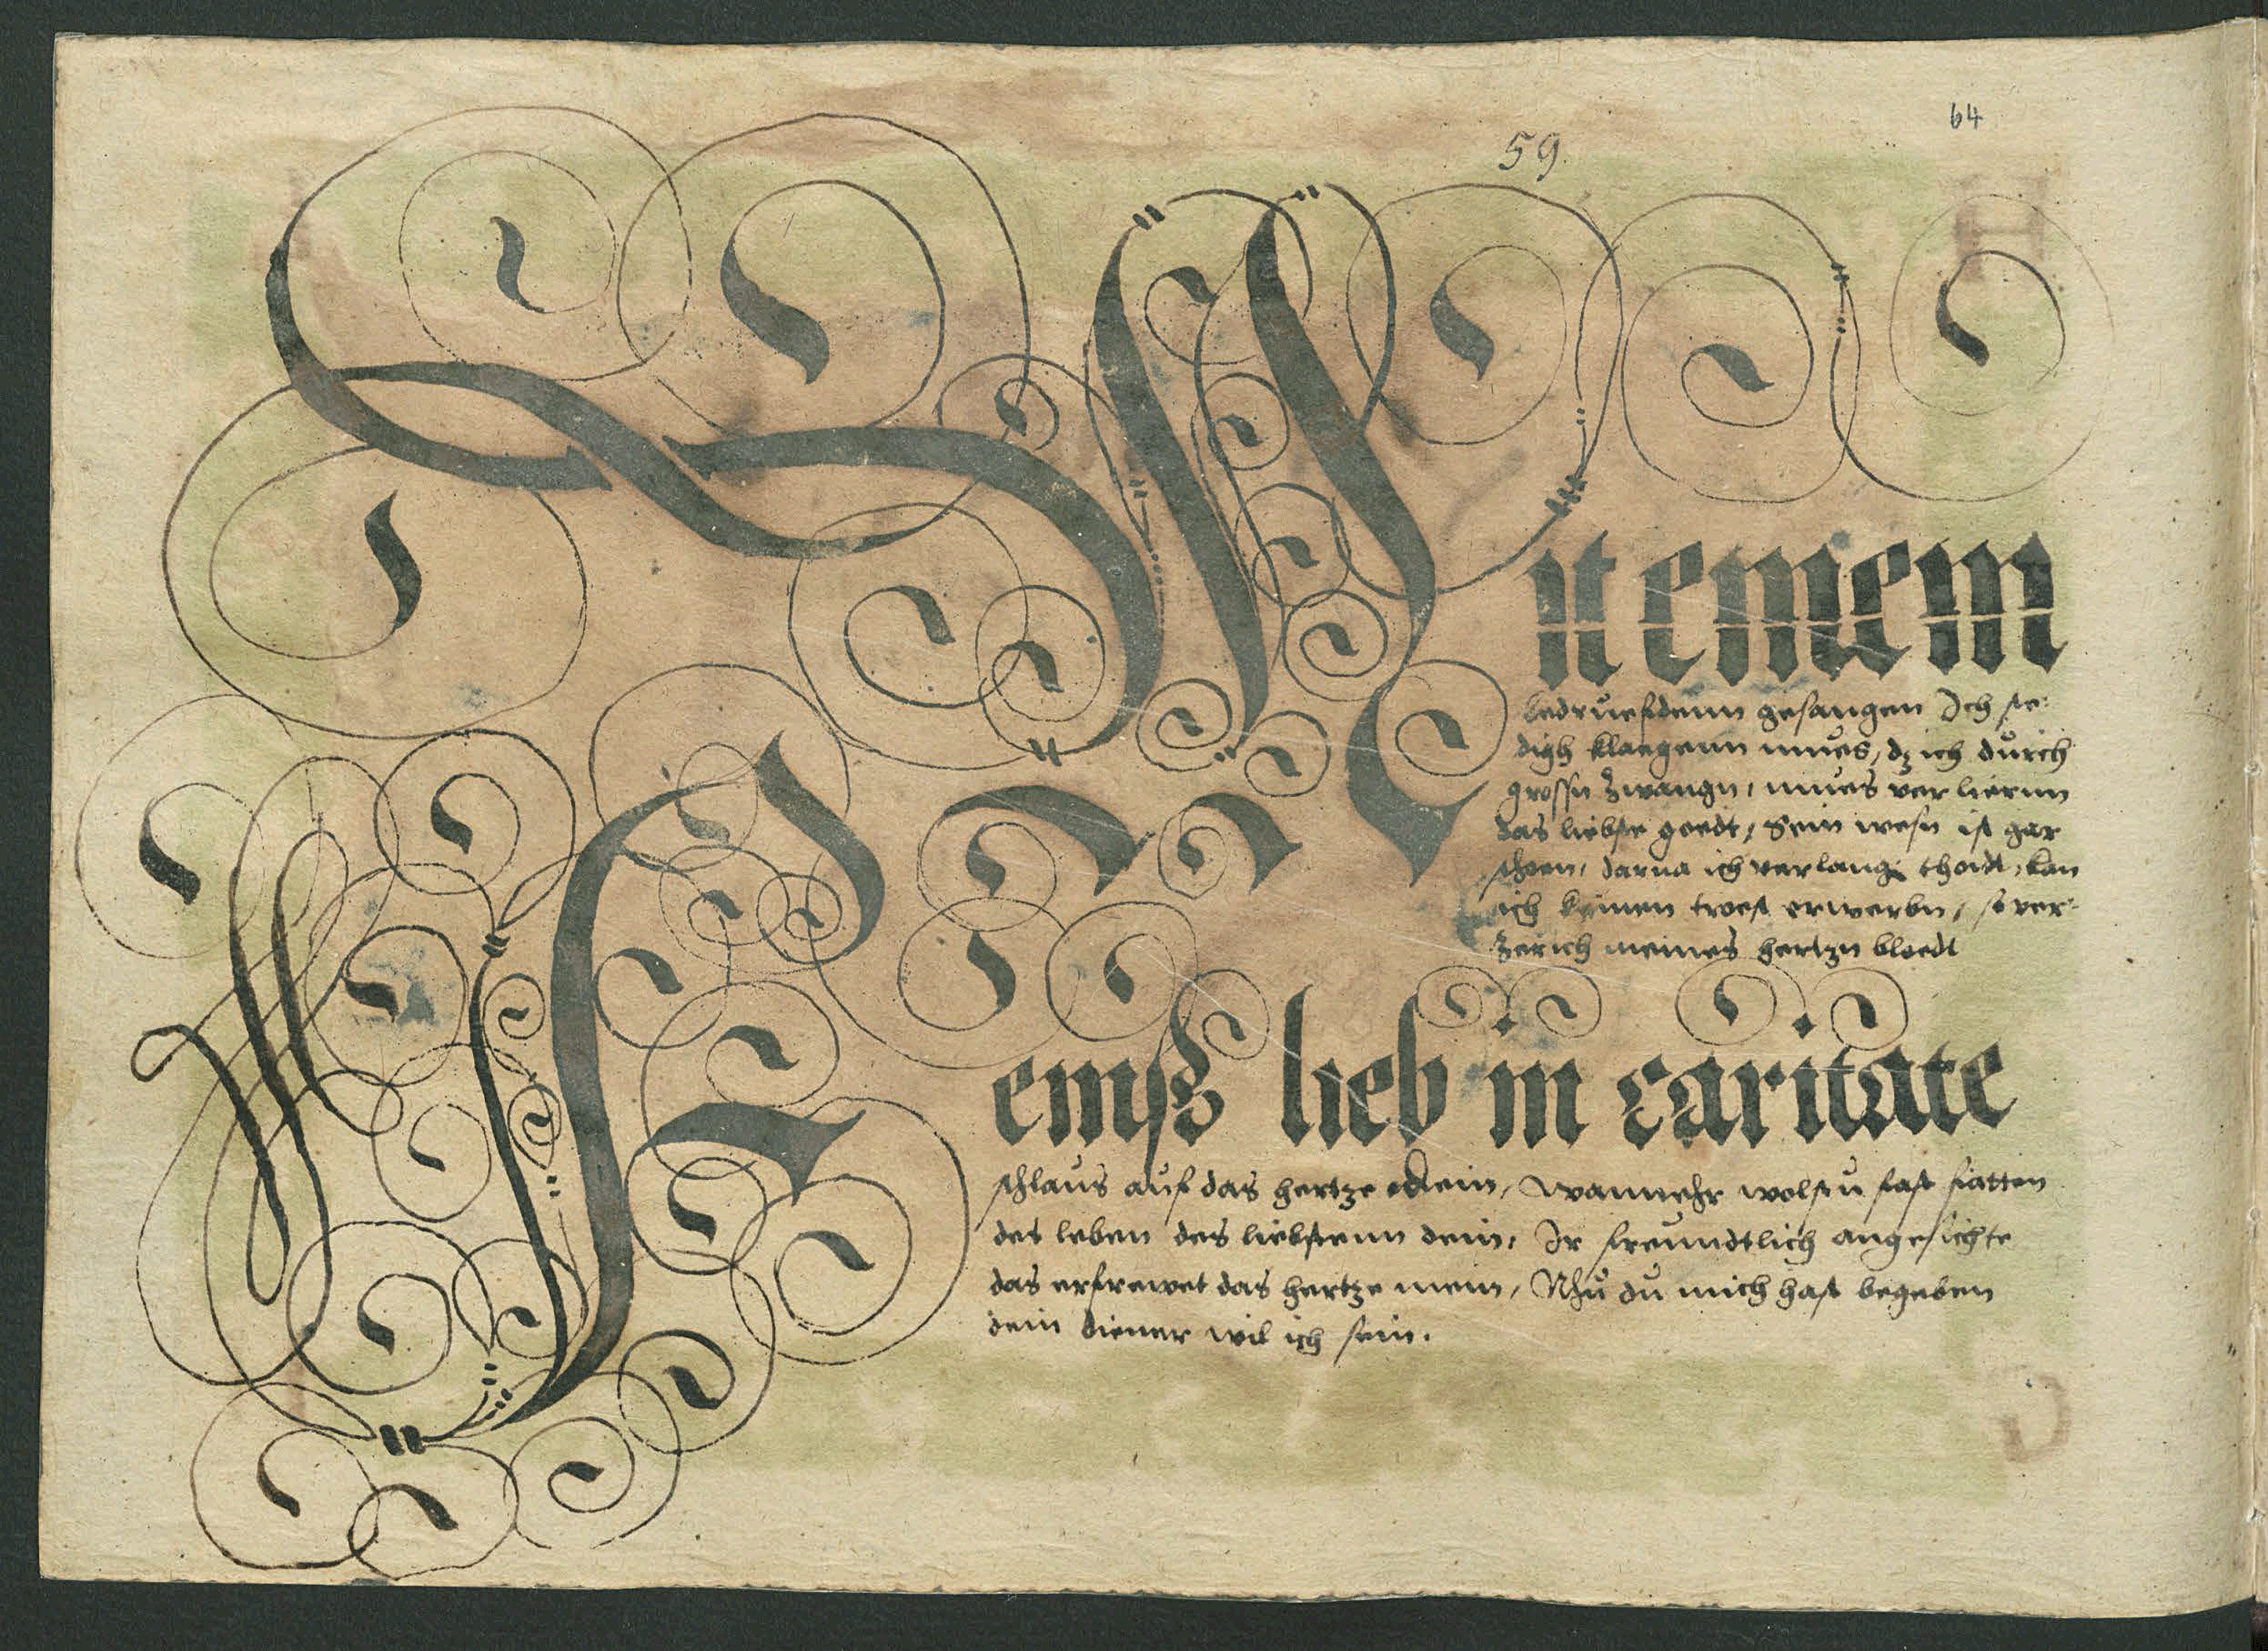 64
59
Mit einem
bedrueftdenn gesangen Ich ste:
digh klaegenn mues, dz ich durch
grossn Zwangn, mues verliernn
das liebste goedt, Sein wesn ist gar
schoen, darna ich verlang thodt, kan
ich keinen troest erwerbn, so ver:
Zerich meines hertzn bloedt
einß lieb in caritate
schlaus auf das hertze dein, wannehr wolstu fast
des leben des liebstenn dein, Ir freundtlich angesichte
das erfrewet das hertze mein, Nhu du mich hast begeben
dein diener wil ich sein.